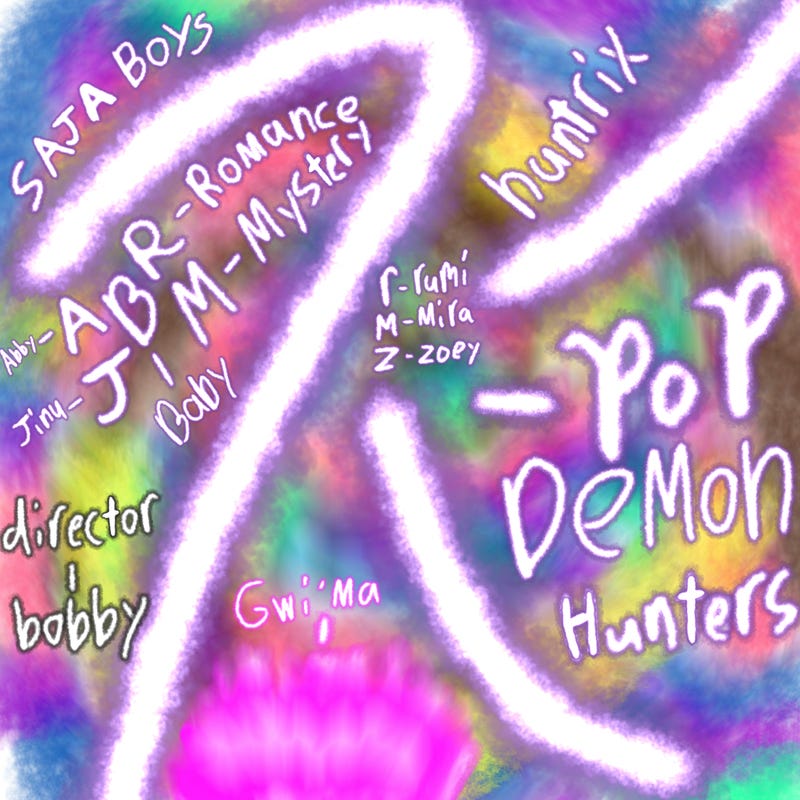 SAJA BOYS
huntrix
A B R - Romance
Abby - J i M - Mystery
Jinu -
Baby
r - rumi
M - Mira
Z - zoey
K - POP
DeMon
Hunters
director
bobby
Gwi'Ma